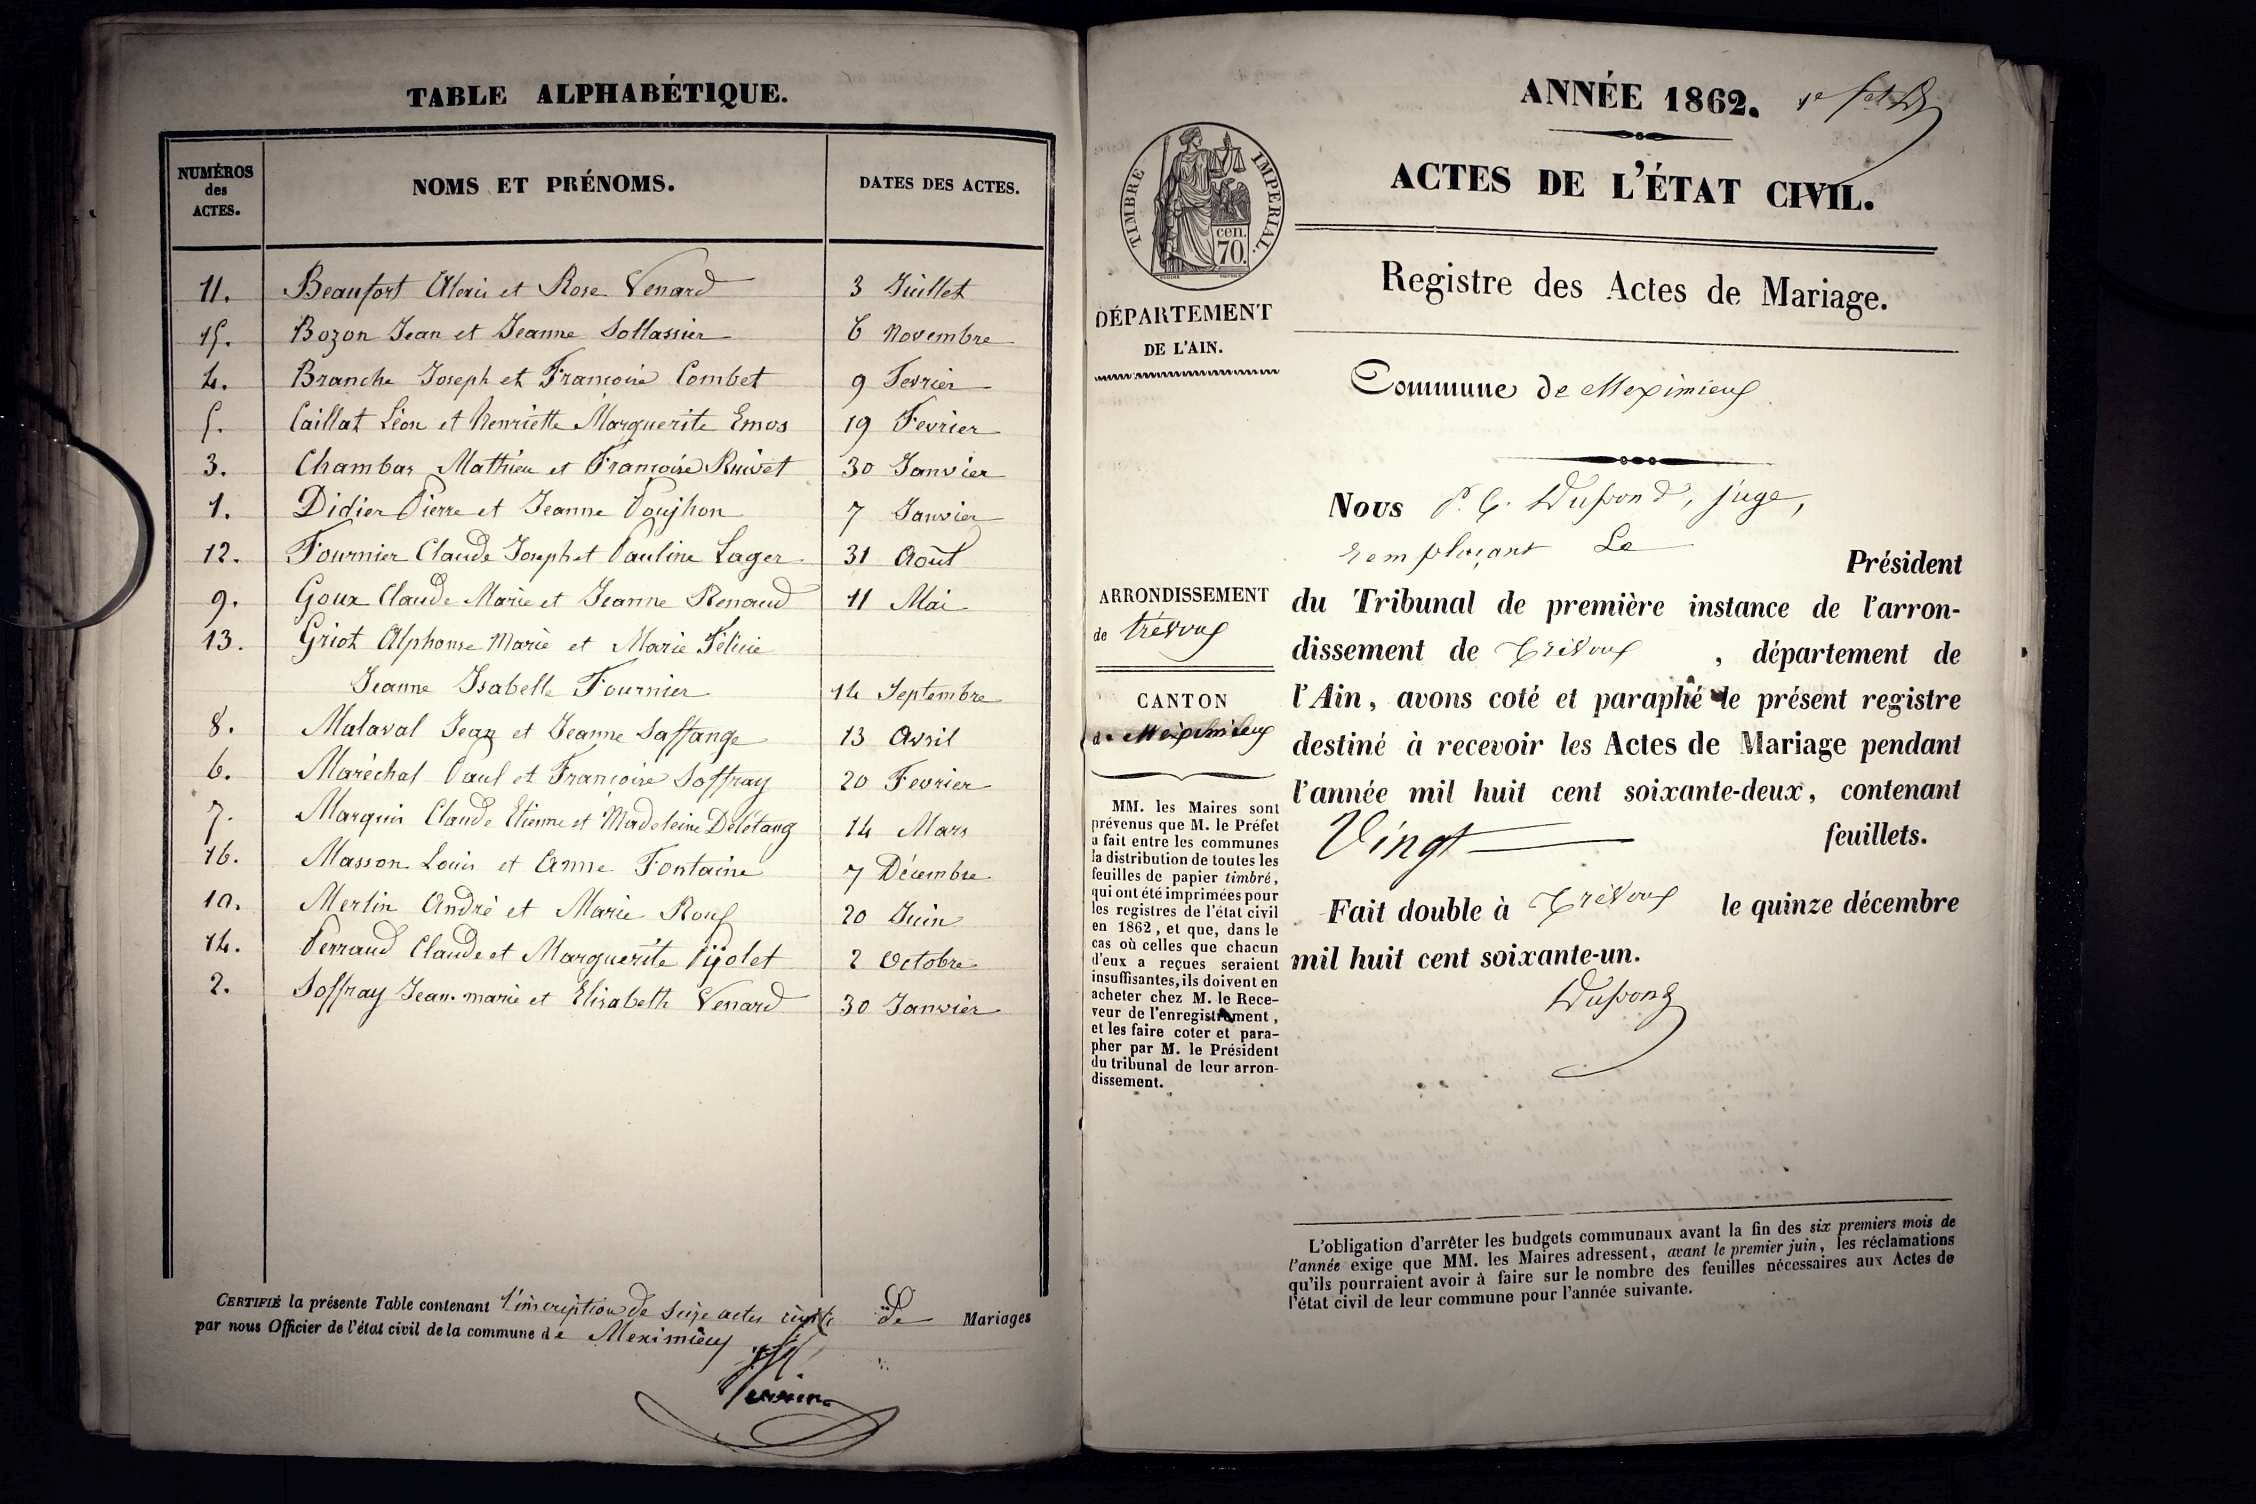 TABLE ALPHABÉTIQUE.
NUMÉROS des ACTES. NOMS ET PRÉNOMS. DATES DES ACTES.
11. Beaufort Alexis et Rose Venard 3 Juillet
15. Bozon Jean et Jeanne Sollassier 6 Novembre
4. Branche Joseph et Françoise Combet 9 Fevrier
5. Caillat Léon et Henriette Marguerite Emos 19 Fevrier
3. Chambar Mathieu et Françoise Ruivet 30 Janvier
1. Didier Pierre et Jeanne Poujhon 7 Janvier
12. Fournier Claude Joseph et Pauline Lager 31 Août
9. Goux Claude Marie et Jeanne Renaud 11 Mai
13. Griot Alphonse Marie et Marie Félicie
Jeanne Isabelle Fournier 14 Septembre
8. Malaval Jean et Jeanne Saffange 13 Avril
6. Maréchal Paul et Françoise Soffray 20 Fevrier
7. Marquis Claude Etienne et Madeleine Delétang 14 Mars
16. Masson Louis et Anne Fontaine 7 Décembre
10. Merlin André et Marie Roux 20 Juin
14. Perraud Claude et Marguerite Pijolet 2 Octobre
2. Soffray Jean-marie et Elisabeth Venard 30 Janvier
CERTIFIÉ la présente Table contenant l'inscription de seize actes de Mariages
par nous Officier de l'état civil de la commune de Meximieux
ANNÉE 1862.
ACTES DE L'ÉTAT CIVIL.
TIMBRE IMPERIAL.
cen.
70.
Registre des Actes de Mariage.
DÉPARTEMENT
DE L'AIN.
Commune de Meximieux
Nous P. G. Dupond, juge,
remplaçant Le
Président
ARRONDISSEMENT
de trévoux
CANTON
de Meximieux
du Tribunal de première instance de l'arron-
dissement de Trévoux, département de
l'Ain, avons coté et paraphé le présent registre
destiné à recevoir les Actes de Mariage pendant
l'année mil huit cent soixante-deux, contenant
Vingt feuillets.
Fait double à Trévoux le quinze décembre
mil huit cent soixante-un.
Dupond
MM. les Maires sont
prévenus que M. le Préfet
a fait entre les communes
la distribution de toutes les
feuilles de papier timbré,
qui ont été imprimées pour
les registres de l'état civil
en 1862, et que, dans le
cas où celles que chacun
d'eux a reçues seraient
insuffisantes, ils doivent en
acheter chez M. le Rece-
veur de l'enregistrement,
et les faire coter et para-
pher par M. le Président
du tribunal de leur arron-
dissement.
L'obligation d'arrêter les budgets communaux avant la fin des six premiers mois de
l'année exige que MM. les Maires adressent, avant le premier juin, les réclamations
qu'ils pourraient avoir à faire sur le nombre des feuilles nécessaires aux Actes de
l'état civil de leur commune pour l'année suivante.